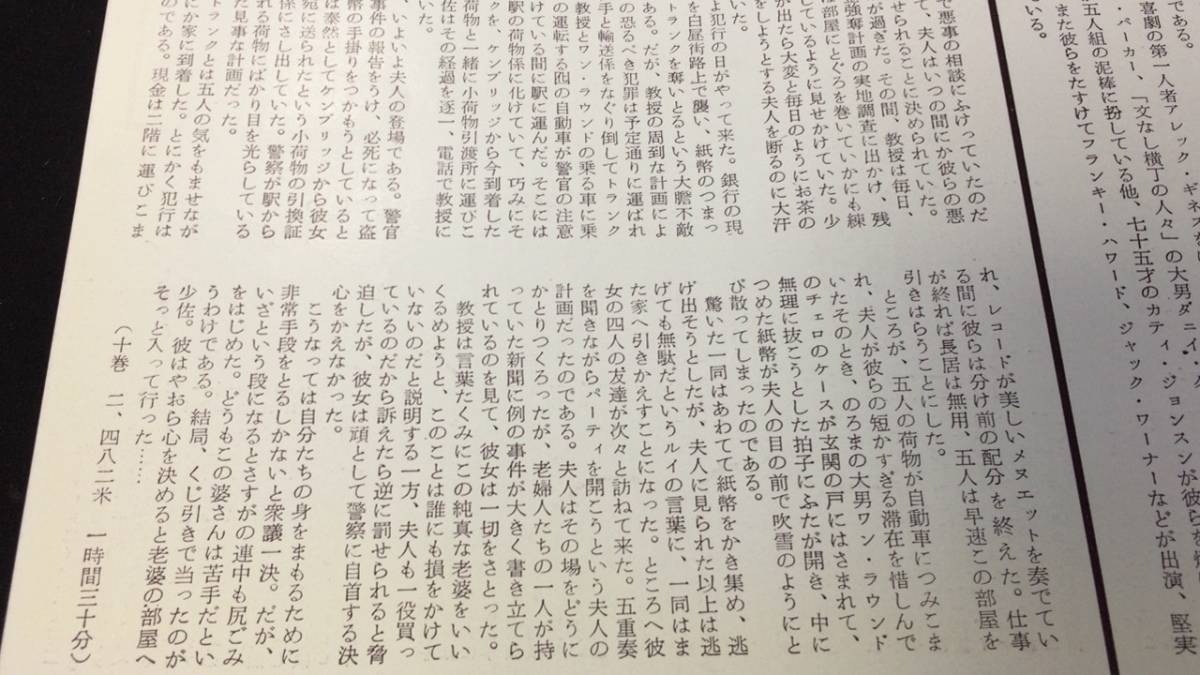 である。
喜劇の第一人者アレック・ギネスが
・パーカー、「文なし横丁の人々」の大男ダニイ・
五人組の泥棒に扮している他、七十五才のカティ・ジョンスンが彼らを
また彼らをたすけてフランキー・ハワード、ジャック・ワーナーなどが出演、堅実
ている。
で悪事の相談にふけっていたのだ
て、夫人はいつの間にか彼らの悪
せられることに決められていた。
が過ぎた。その間、教授は毎日、
強奪計画の実地調査に出かけ、残
は部屋にとぐろを巻いていかにも練
しているように見せかけていた。少
が出たら大変と毎日のようにお茶の
をしようとする夫人を断るのに大汗
いた。
よ犯行の日がやって来た。銀行の現
を白昼街路上で襲い、紙幣のつまっ
トランクを奪いとるという大胆不敵
ある。だが、教授の周到な計画によ
の恐るべき犯罪は予定通りに運ばれ
手と輸送係をなぐり倒してトランク
教授とワン・ラウンドの乗る車に乗
の運転する囮の自動車が警官の注意
けている間に駅に運んだ。そこには
駅の荷物係に化けていて、巧みにそ
クを、ケンブリッジから今到着した
荷物と一緒に小荷物引渡所に運びこ
佐はその経過を逐一、電話で教授に
いた。
、いよいよ夫人の登場である。警官
事件の報告をうけ、必死になって盗
幣の手掛りをつかもうとしていると
は泰然としてケンブリッジから彼女
宛に送られたという小荷物の引換証
係にさし出していた。警察が駅から
れる荷物にばかり目を光らしている
た見事な計画だった。
トランクとは五人の気をもませなが
にか家に到着した。とにかく犯行は
のである。現金は二階に運びこま
れ、レコードが美しいメヌエットを奏でてい
る間に彼らは分け前の配分を終えた。仕事
が終れば長居は無用、五人は早速この部屋を
引きはらうことにした。
ところが、五人の荷物が自動車につみこま
れ、夫人が彼らの短かすぎる滞在を惜しんで
いたそのとき、のろまの大男ワン・ラウンド
のチェロのケースが玄関の戸にはさまれて、
無理に抜こうとした拍子にふたが開き、中に
つめた紙幣が夫人の目の前で吹雪のようにと
び散ってしまったのである。
驚いた一同はあわてて紙幣をかき集め、逃
げ出そうとしたが、夫人に見られた以上は逃
げても無駄だというルイの言葉に、一同はま
た家へ引きかえすことになった。ところへ彼
女の四人の友達が次々と訪ねて来た。五重奏
を聞きながらパーティを開こうという夫人の
計画だったのである。夫人はその場をどうに
かとりつくろったが、老婦人たちの一人が持
っていた新聞に例の事件が大きく書き立てら
れているのを見て、彼女は一切をさとった。
教授は言葉たくみにこの純真な老婆をいい
くるめようと、このことは誰にも損をかけて
いないのだと説明する一方、夫人も一役買っ
ているのだから訴えたら逆に罰せられると脅
迫したが、彼女は頑として警察に自首する決
心をかえなかった。
こうなっては自分たちの身をまもるために
非常手段をとるしかないと衆議一決。だが、
いざという段になるとさすがの連中も尻ごみ
をはじめた。どうもこの婆さんは苦手だとい
うわけである。結局、くじ引きで当ったのが
少佐。彼はやおら心を決めると老婆の部屋へ
そっと入って行った……
（十巻　二、四八二米　一時間三十分）